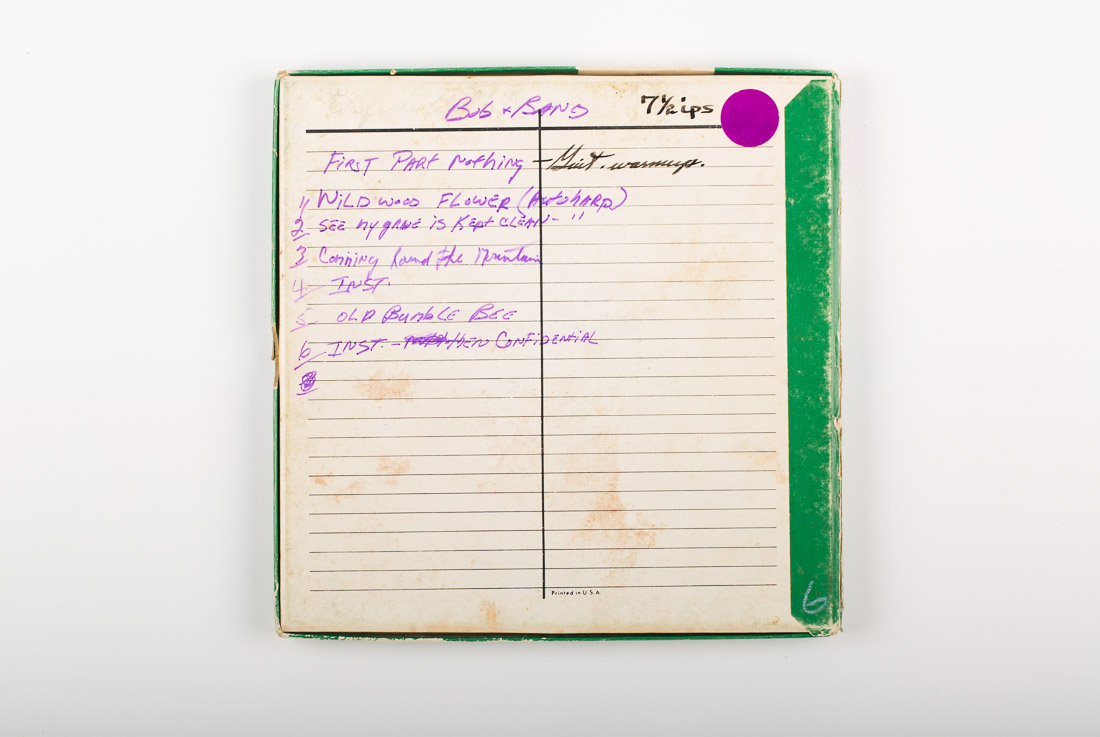 Bob + BAND 7 1/2 ips
FIRST PART NOTHING - Guit. warmup.
1 WILDWOOD FLOWER (AUTOHARP)
2 SEE MY GRAVE IS KEPT CLEAN - "
3 Comming Round the Mountain
4 INST.
5 OLD BUMBLE BEE
6 INST. - then CONFIDENTIAL
Printed in U.S.A.
6